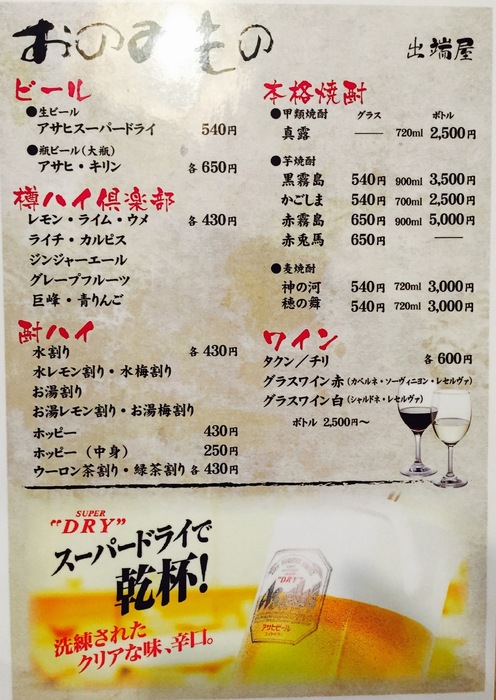 おのみもの
出端屋
ビール
●生ビール
アサヒスーパードライ 540円
●瓶ビール(大瓶)
アサヒ・キリン 各650円
樽ハイ倶楽部
レモン・ライム・ウメ 各430円
ライチ・カルピス
ジンジャーエール
グレープフルーツ
巨峰・青りんご
酎ハイ
水割り 各430円
水レモン割り・水梅割り
お湯割り
お湯レモン割り・お湯梅割り
ホッピー 430円
ホッピー(中身) 250円
ウーロン茶割り・緑茶割り 各430円
本格焼酎
●甲類焼酎 グラス ボトル
真露 —— 720ml 2,500円
●芋焼酎
黒霧島 540円 900ml 3,500円
かごしま 540円 700ml 2,500円
赤霧島 650円 900ml 5,000円
赤兎馬 650円 ——
●麦焼酎
神の河 540円 720ml 3,000円
穂の舞 540円 720ml 3,000円
ワイン
タクン/チリ 各600円
グラスワイン赤(カベルネ・ソーヴィニヨン・レセルヴァ)
グラスワイン白(シャルドネ・レセルヴァ)
ボトル 2,500円〜
SUPER
"DRY"
スーパードライで
乾杯!
洗練された
クリアな味、辛口。
"DRY"
アサヒビール